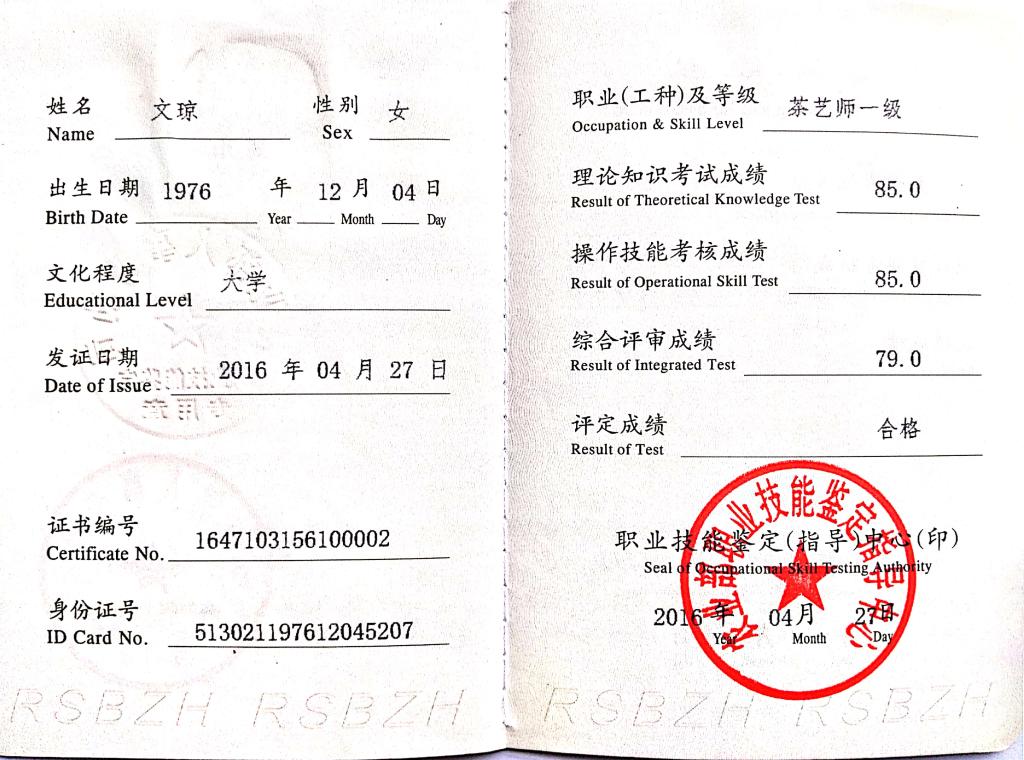 姓名 文琼 性别 女
Name Sex
出生日期 1976 年 12 月 04 日
Birth Date Year Month Day
文化程度 大学
Educational Level
发证日期 2016 年 04 月 27 日
Date of Issue
证书编号 1647103156100002
Certificate No.
身份证号 513021197612045207
ID Card No.
RSBZH RSBZH
职业(工种)及等级 茶艺师一级
Occupation & Skill Level
理论知识考试成绩 85.0
Result of Theoretical Knowledge Test
操作技能考核成绩 85.0
Result of Operational Skill Test
综合评审成绩 79.0
Result of Integrated Test
评定成绩 合格
Result of Test
农业部职业技能鉴定指导中心
职业技能鉴定(指导)中心(印)
Seal of Occupational Skill Testing Authority
2016 年 04月 27日
Year Month Day
RSBZH RSBZH